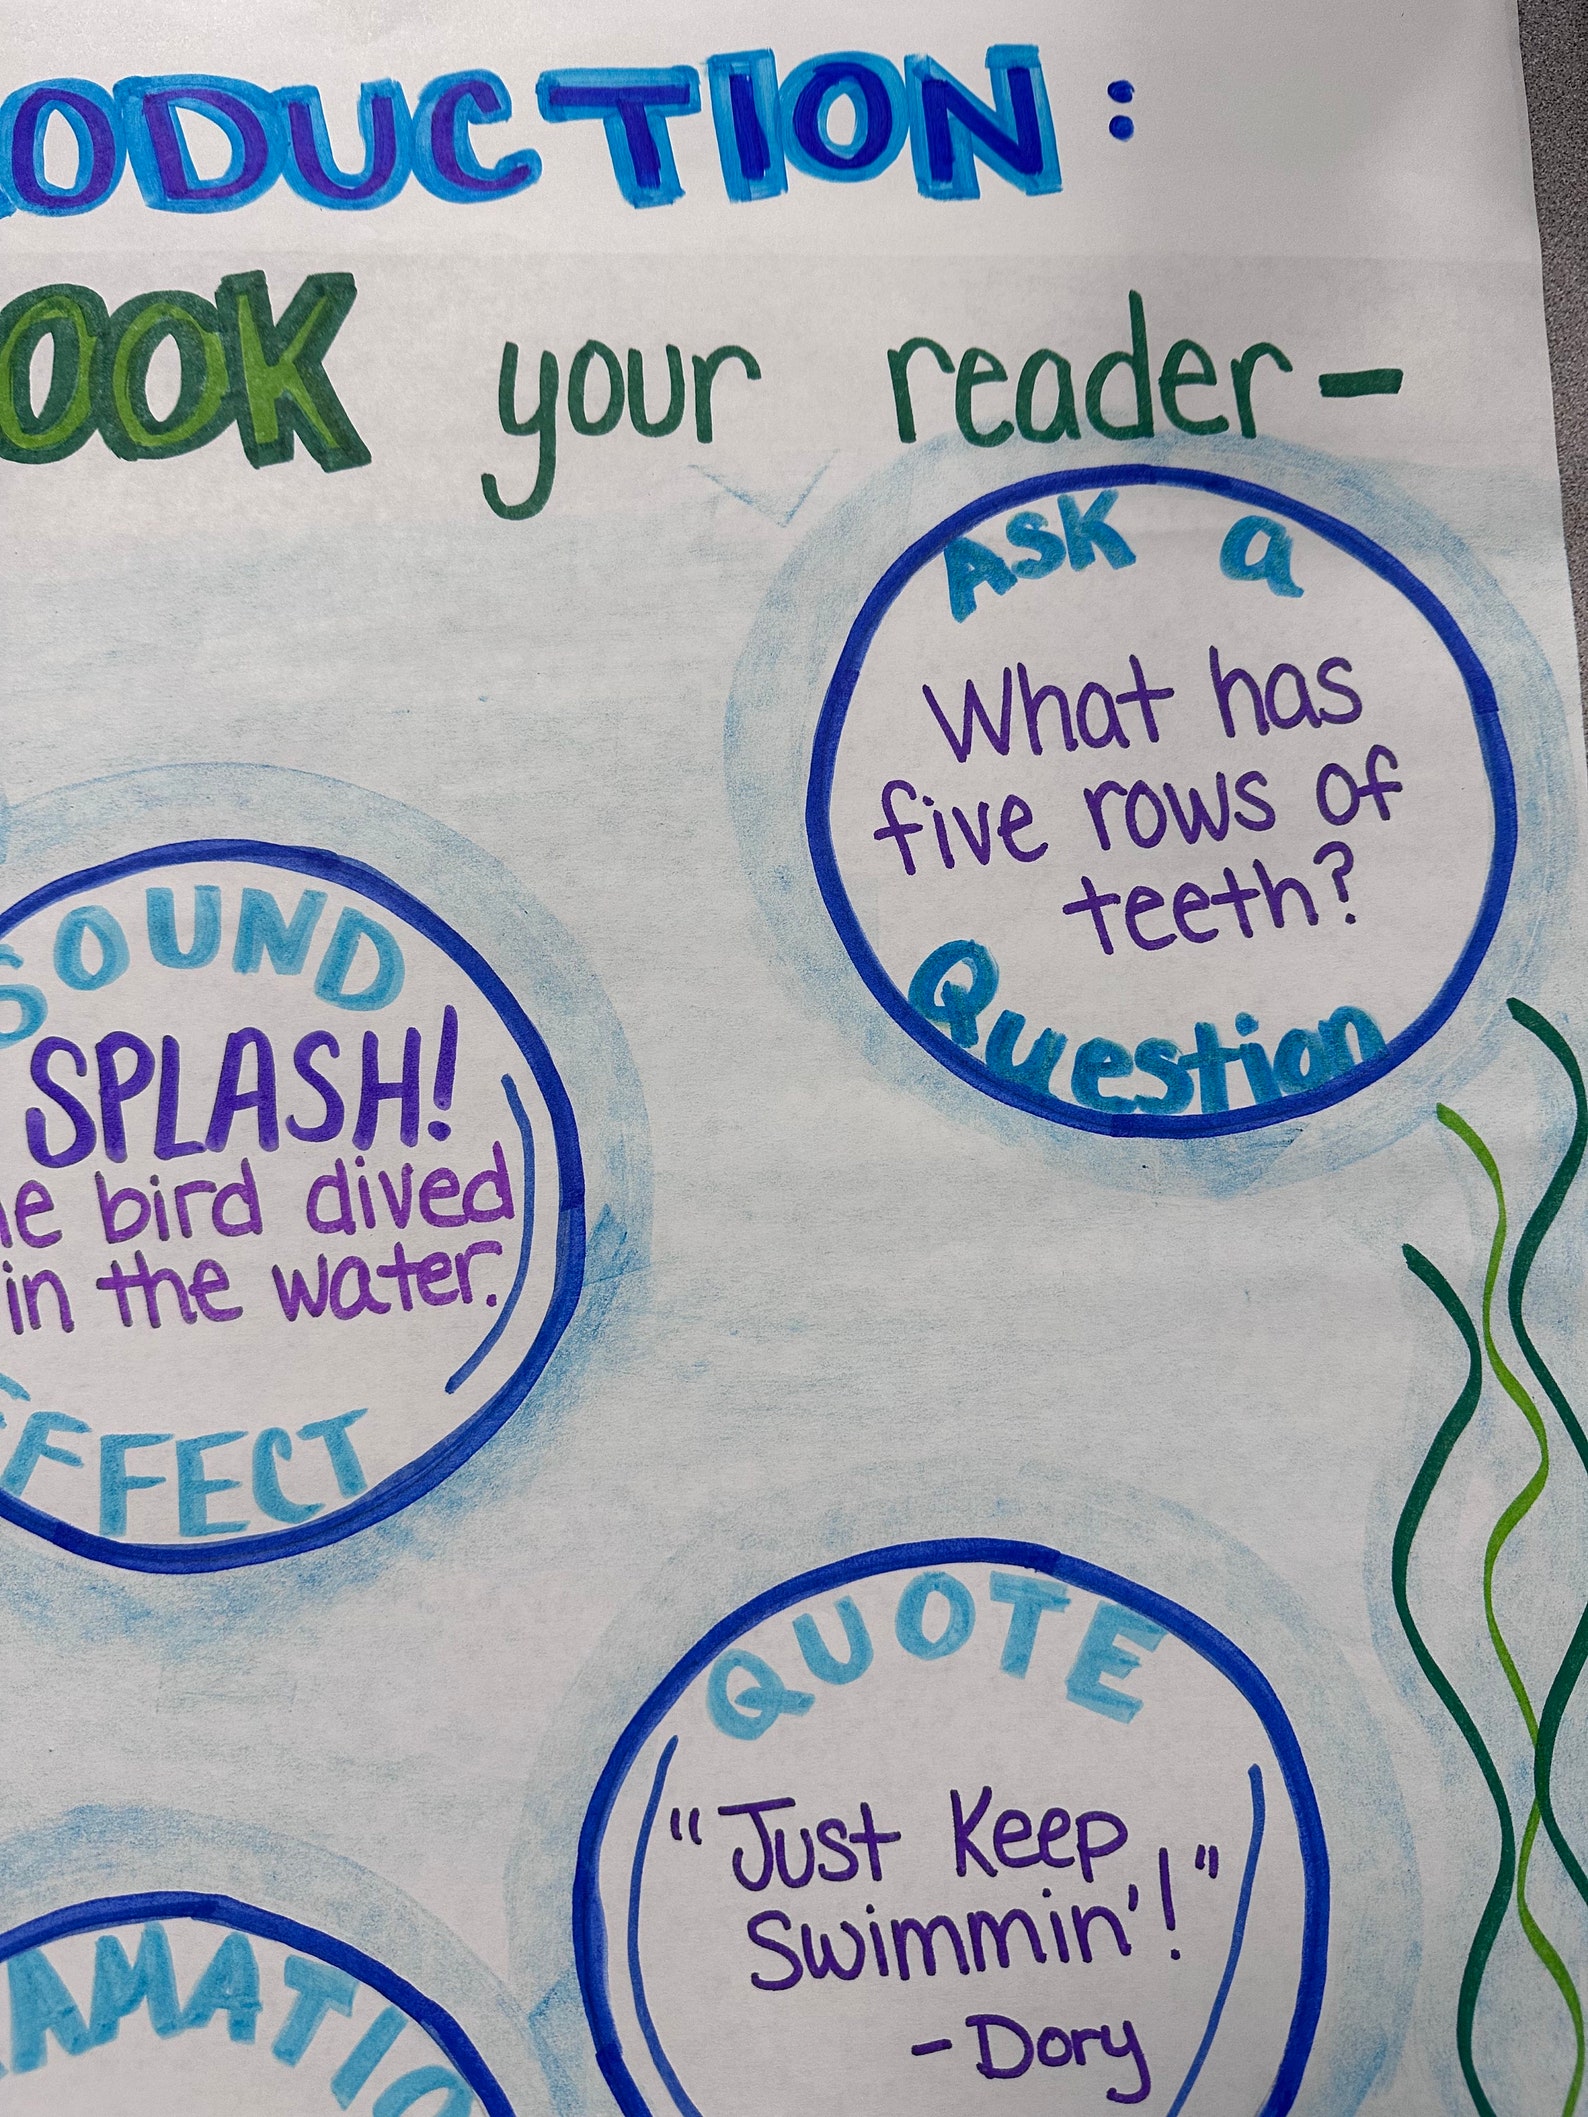 ODUCTION:
OOK your reader-
ASK a
What has
five rows of
teeth?
Question
SOUND
SPLASH!
he bird dived
in the water.
EFFECT
QUOTE
"Just Keep
Swimmin'!"
-Dory
AMATIO